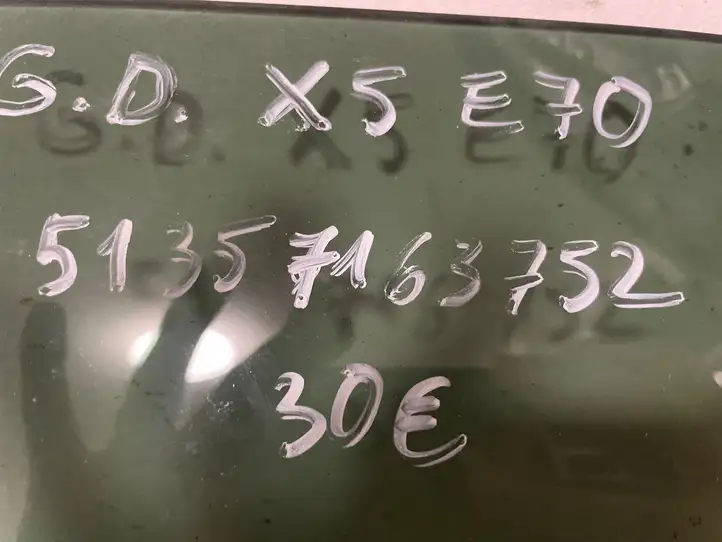 G.D. X5 E70
51357163752
30€